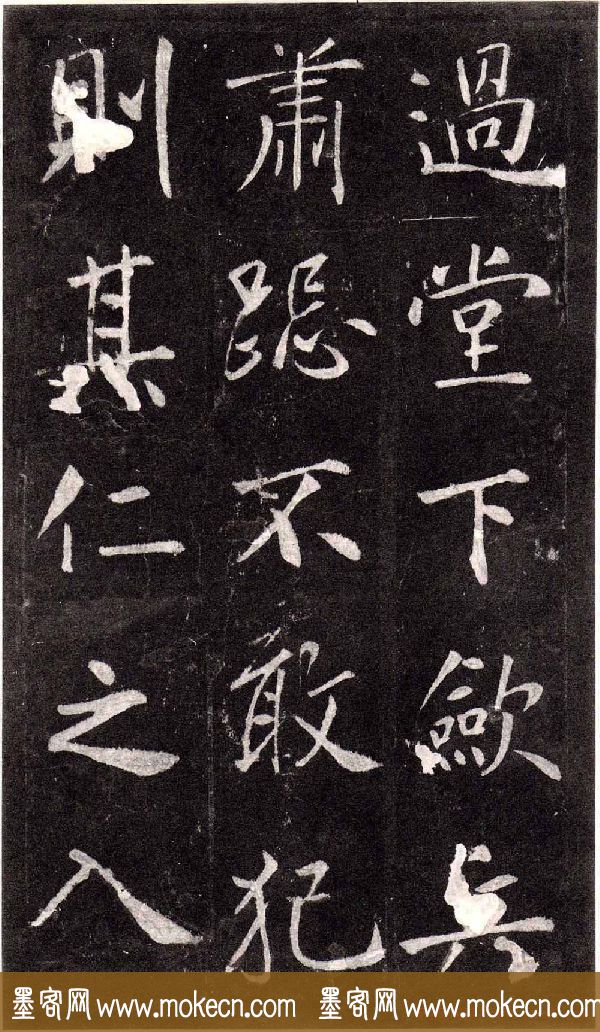 過堂下歛兵
肅跽不敢犯
則其仁之入
墨客网 www.mokecn.com 墨客网 www.mokecn.com